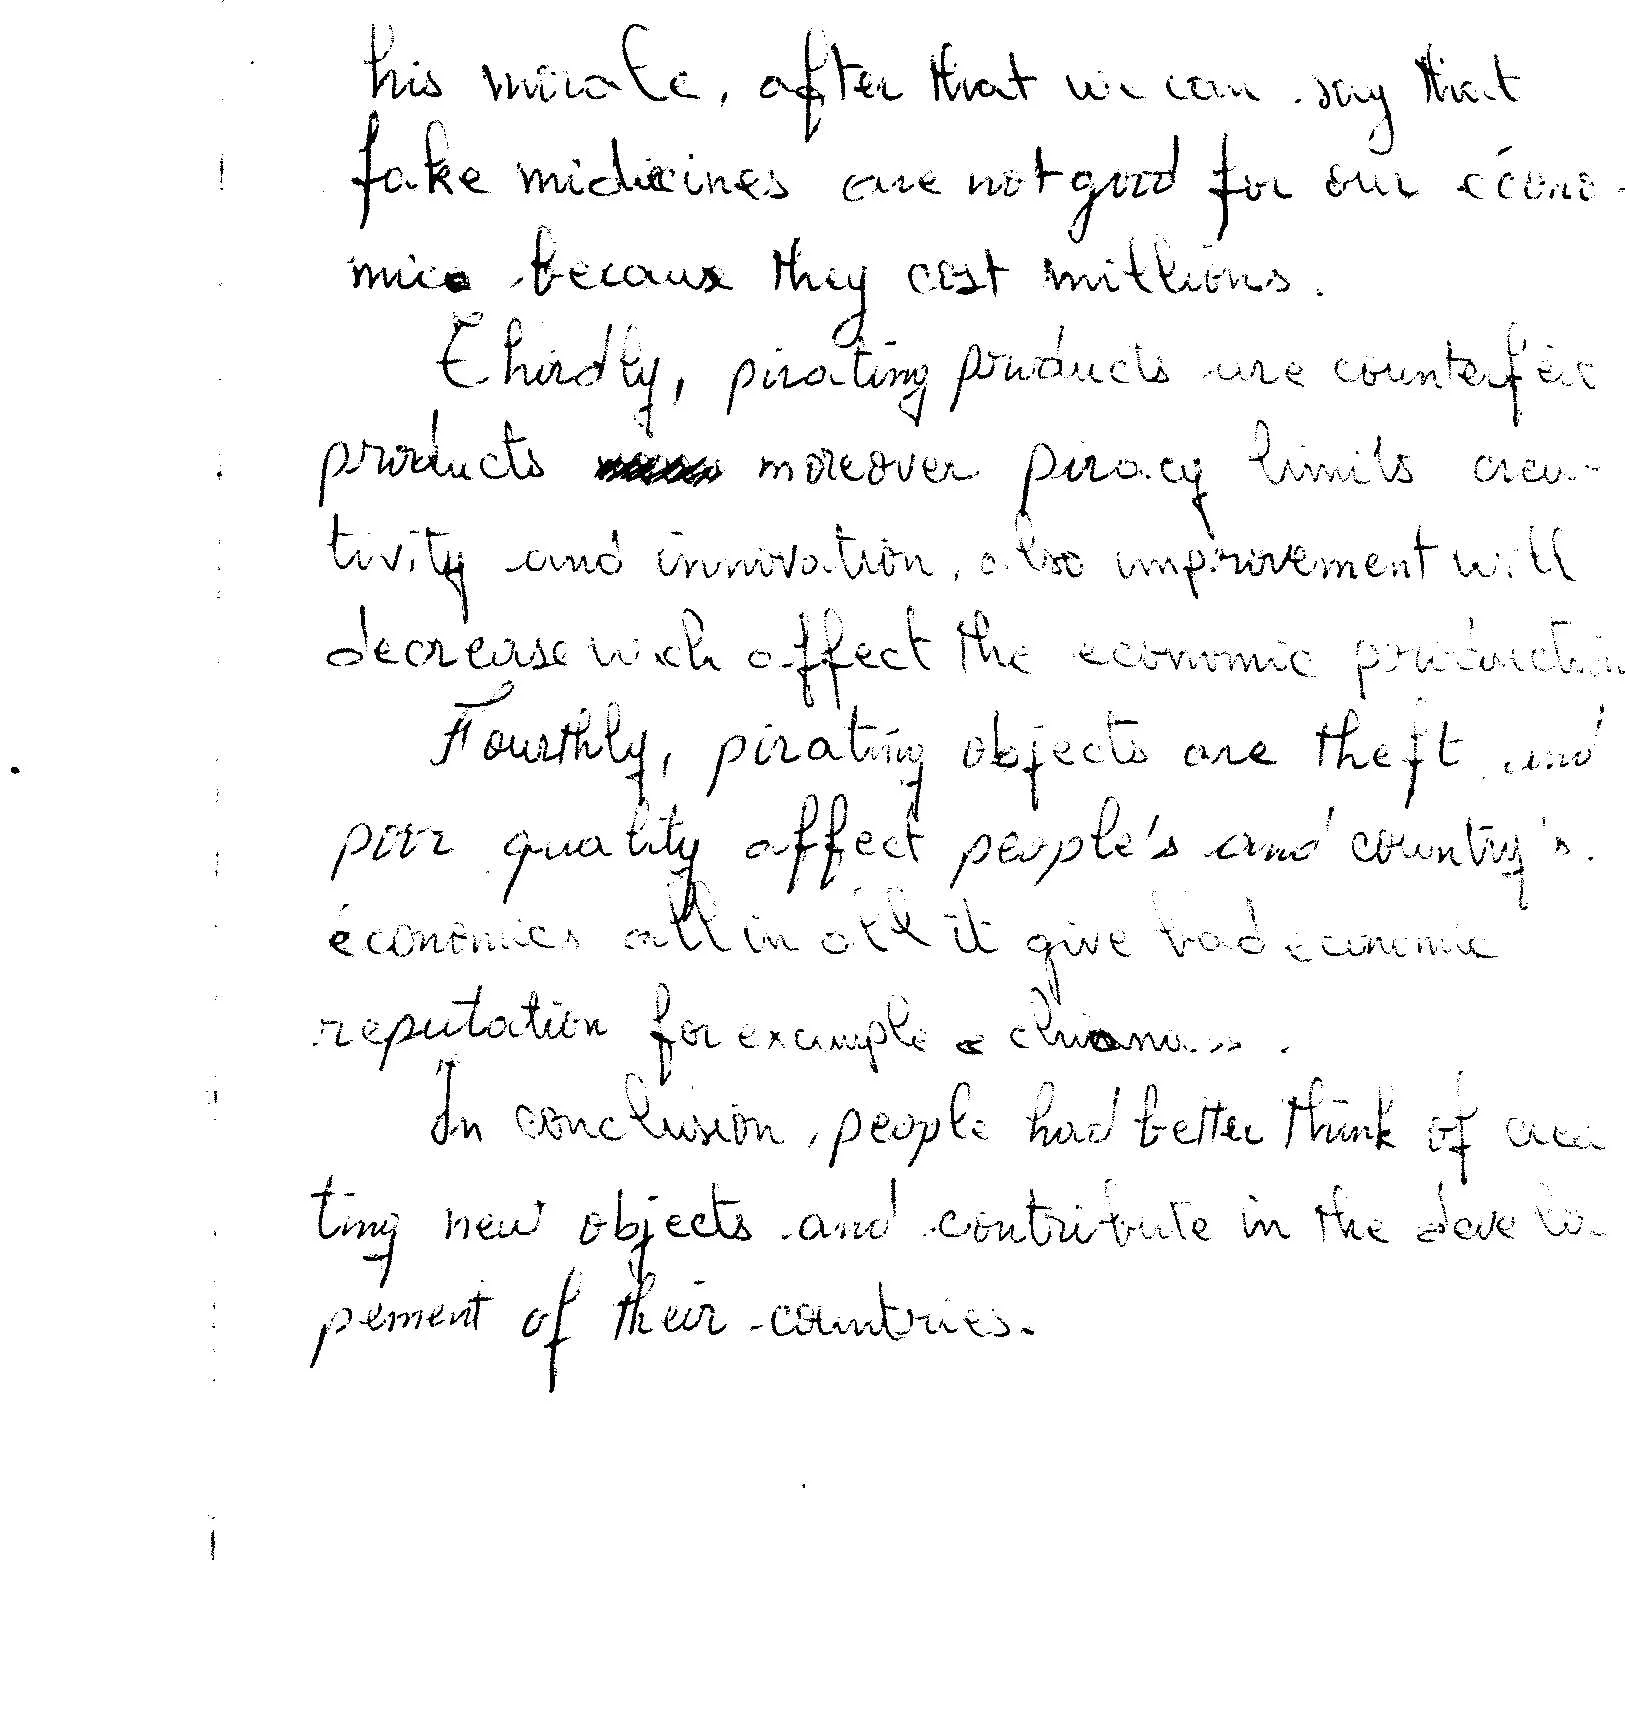 his morale, after that we can say that
fake midicines are not good for our écono-
mic because they cost millions.
Thirdly, pirating products are counterfeit
products moreover piracy limits crea-
tivity and innovation, also improvement will
decrease wich affect the economic production
Fourthly, pirating objects are theft and
poor quality affect people's and country's
économics all in all it give bad economic
reputation for example « chiana ».
In conclusion, people had better think of crea
ting new objects and contribute in the develo-
pement of their countries.